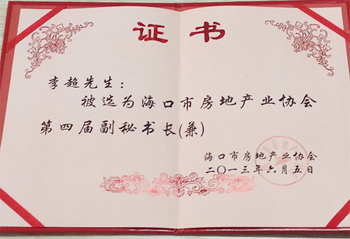 证书
李超先生：
被选为海口市房地产业协会
第四届副秘书长(兼)
海口市房地产业协会
二〇一三年六月五日